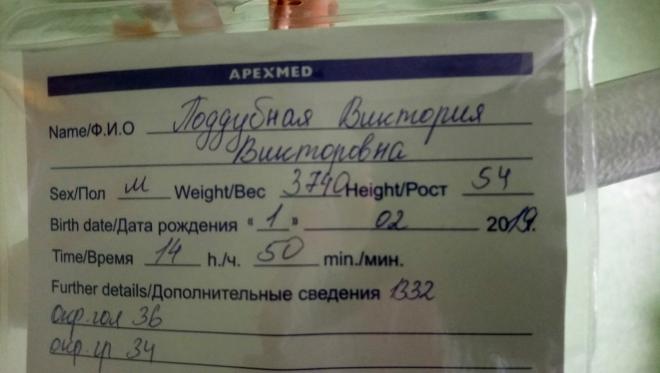 APEXMED
Name/Ф.И.О Поддубная Виктория
Викторовна
Sex/Пол м Weight/Вес 3740 Height/Рост 54
Birth date/Дата рождения "1" 02 2019.
Time/Время 14 h./ч. 50 min./мин.
Further details/Дополнительные сведения 1332
окр. гол 36
окр. гр 34